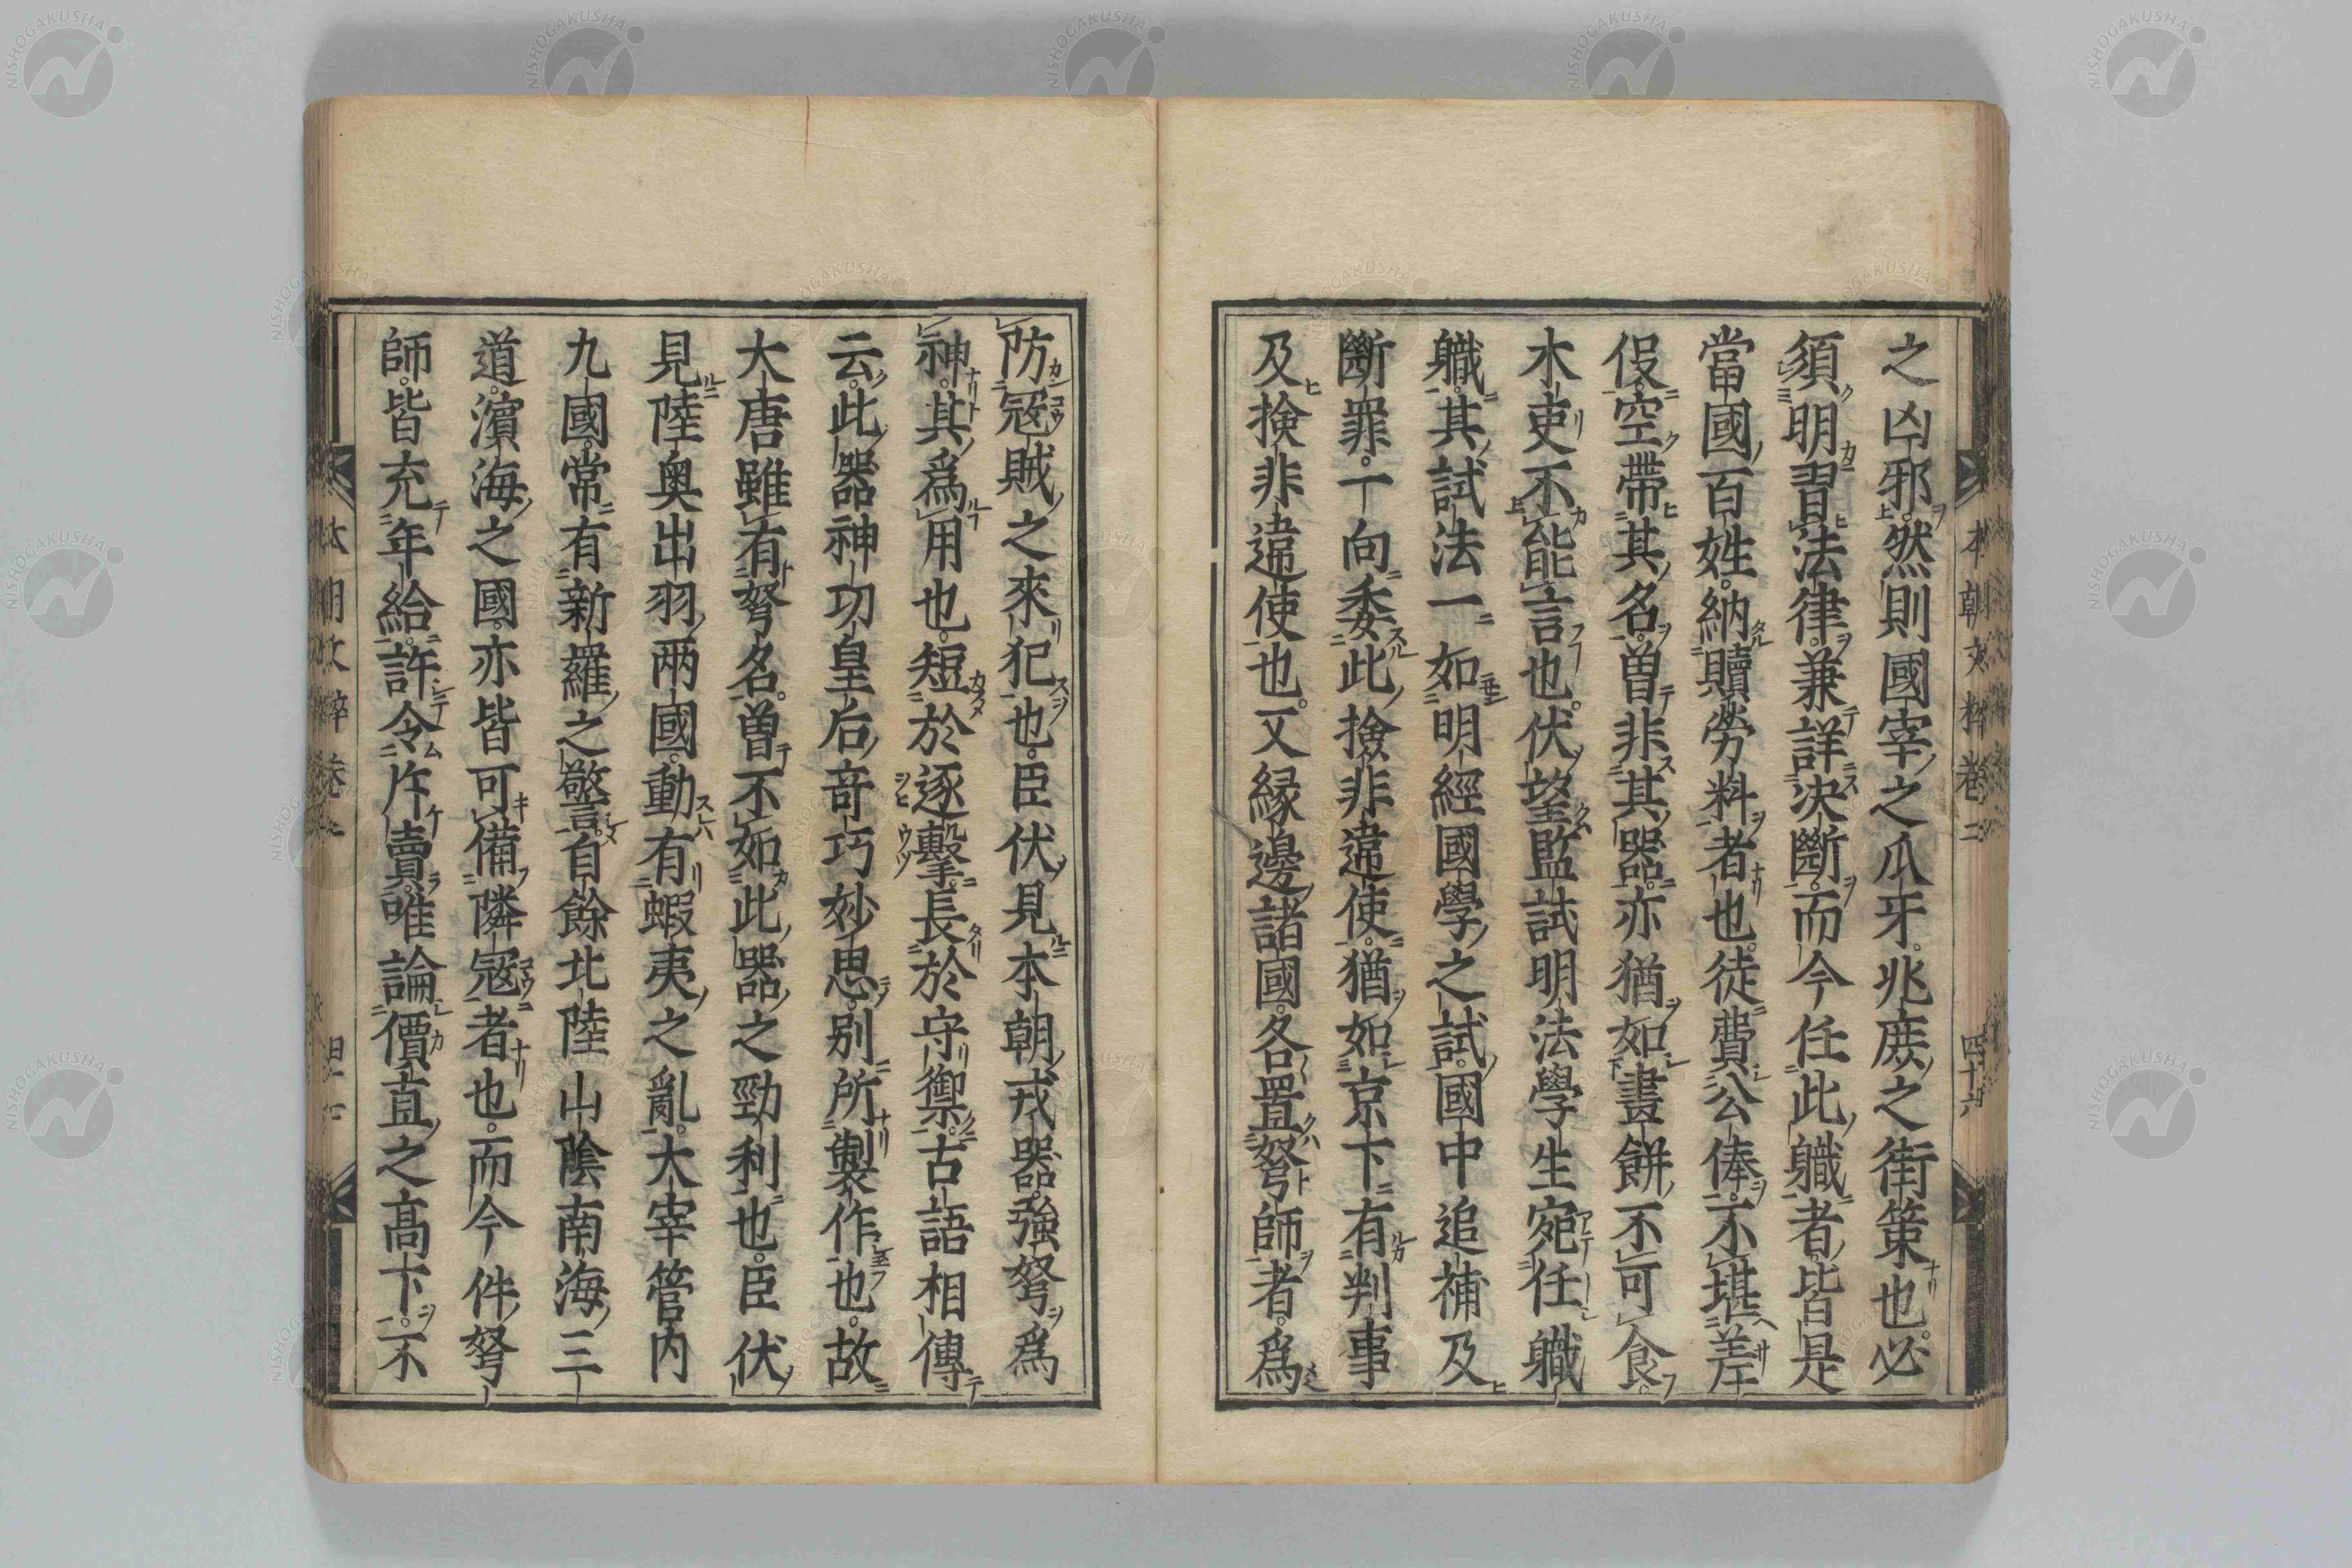 之凶邪。然則國宰之爪牙。兆庶之銜策也。必
須明習法律。兼詳決斷。而今任此職者。皆是
當國百姓。納贖勞料者也。徒費公俸。不堪差
役。空帶其名。曾非其器。亦猶如畫餅不可食。
木吏不能言也。伏望監試明法學生。宛任職
職。其試法一如明經國學之試。國中追補及
斷罪。一向委此撿非違使。猶如京下有判事
及撿非違使也。又緣邊諸國。各置弩師者。爲
防寇賊之來犯也。臣伏見本朝戎器。強弩爲
神。其爲用也。短於逐擊。長於守禦。古語相傳
云。此器神功皇后。奇巧妙思。別所製作也。故
大唐雖有弩名。曾不如此器之勁利也。臣伏
見陸奧出羽兩國。動有蝦夷之亂。大宰管內
九國。常有新羅之警。自餘北陸山陰南海三
道。濱海之國。亦皆可備隣寇者也。而今件弩
師。皆充年給。許令斥賣。唯論價直之高下。不
本朝文粹卷二 四十六
本朝文粹卷二
NISHOGAKUSHA